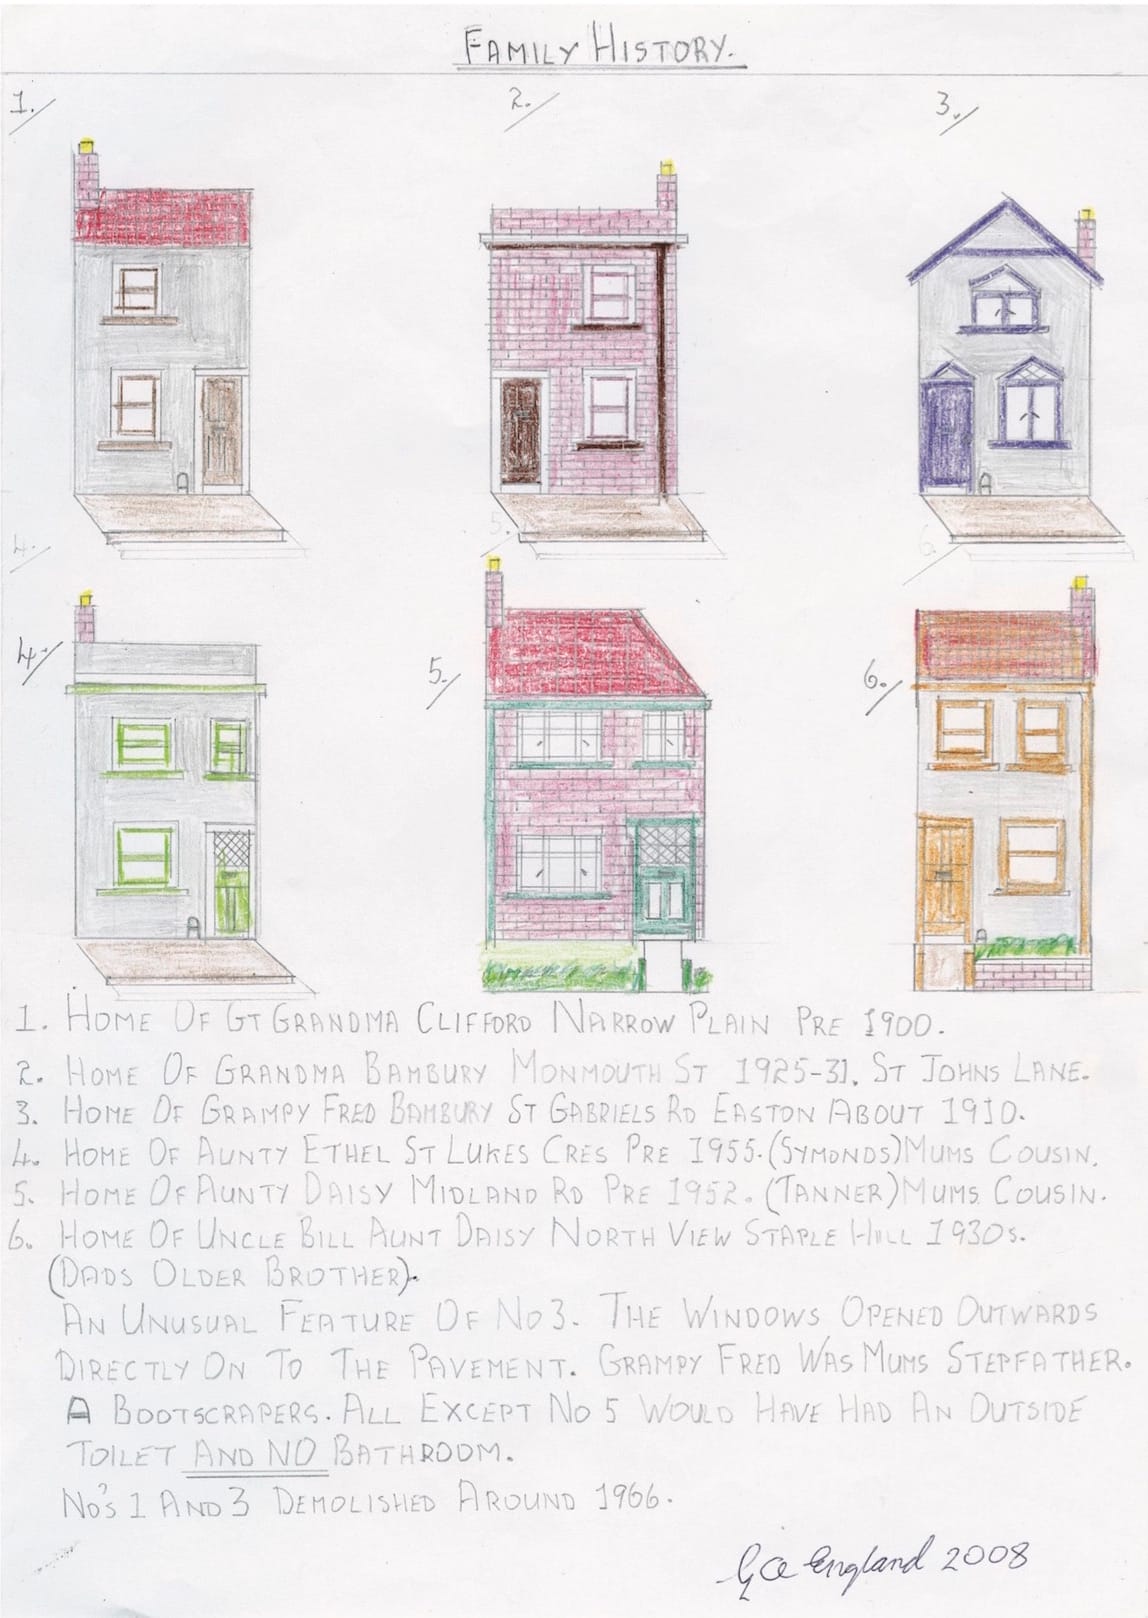 FAMILY HISTORY.
1. 2. 3.
4. 5. 6.
4. 5. 6.
1. HOME OF GT GRANDMA CLIFFORD NARROW PLAIN PRE 1900.
2. HOME OF GRANDMA BAMBURY MONMOUTH ST 1925-31. ST JOHNS LANE.
3. HOME OF GRAMPY FRED BAMBURY ST GABRIELS RD EASTON ABOUT 1910.
4. HOME OF AUNTY ETHEL ST LUKES CRES PRE 1955. (SYMONDS) MUMS COUSIN.
5. HOME OF AUNTY DAISY MIDLAND RD PRE 1952. (TANNER) MUMS COUSIN.
6. HOME OF UNCLE BILL AUNT DAISY NORTH VIEW STAPLE HILL 1930s.
(DADS OLDER BROTHER).
AN UNUSUAL FEATURE OF NO 3. THE WINDOWS OPENED OUTWARDS
DIRECTLY ON TO THE PAVEMENT. GRAMPY FRED WAS MUMS STEPFATHER.
BOOTSCRAPERS. ALL EXCEPT NO 5 WOULD HAVE HAD AN OUTSIDE
TOILET AND NO BATHROOM.
NO'S 1 AND 3 DEMOLISHED AROUND 1966.
England 2008